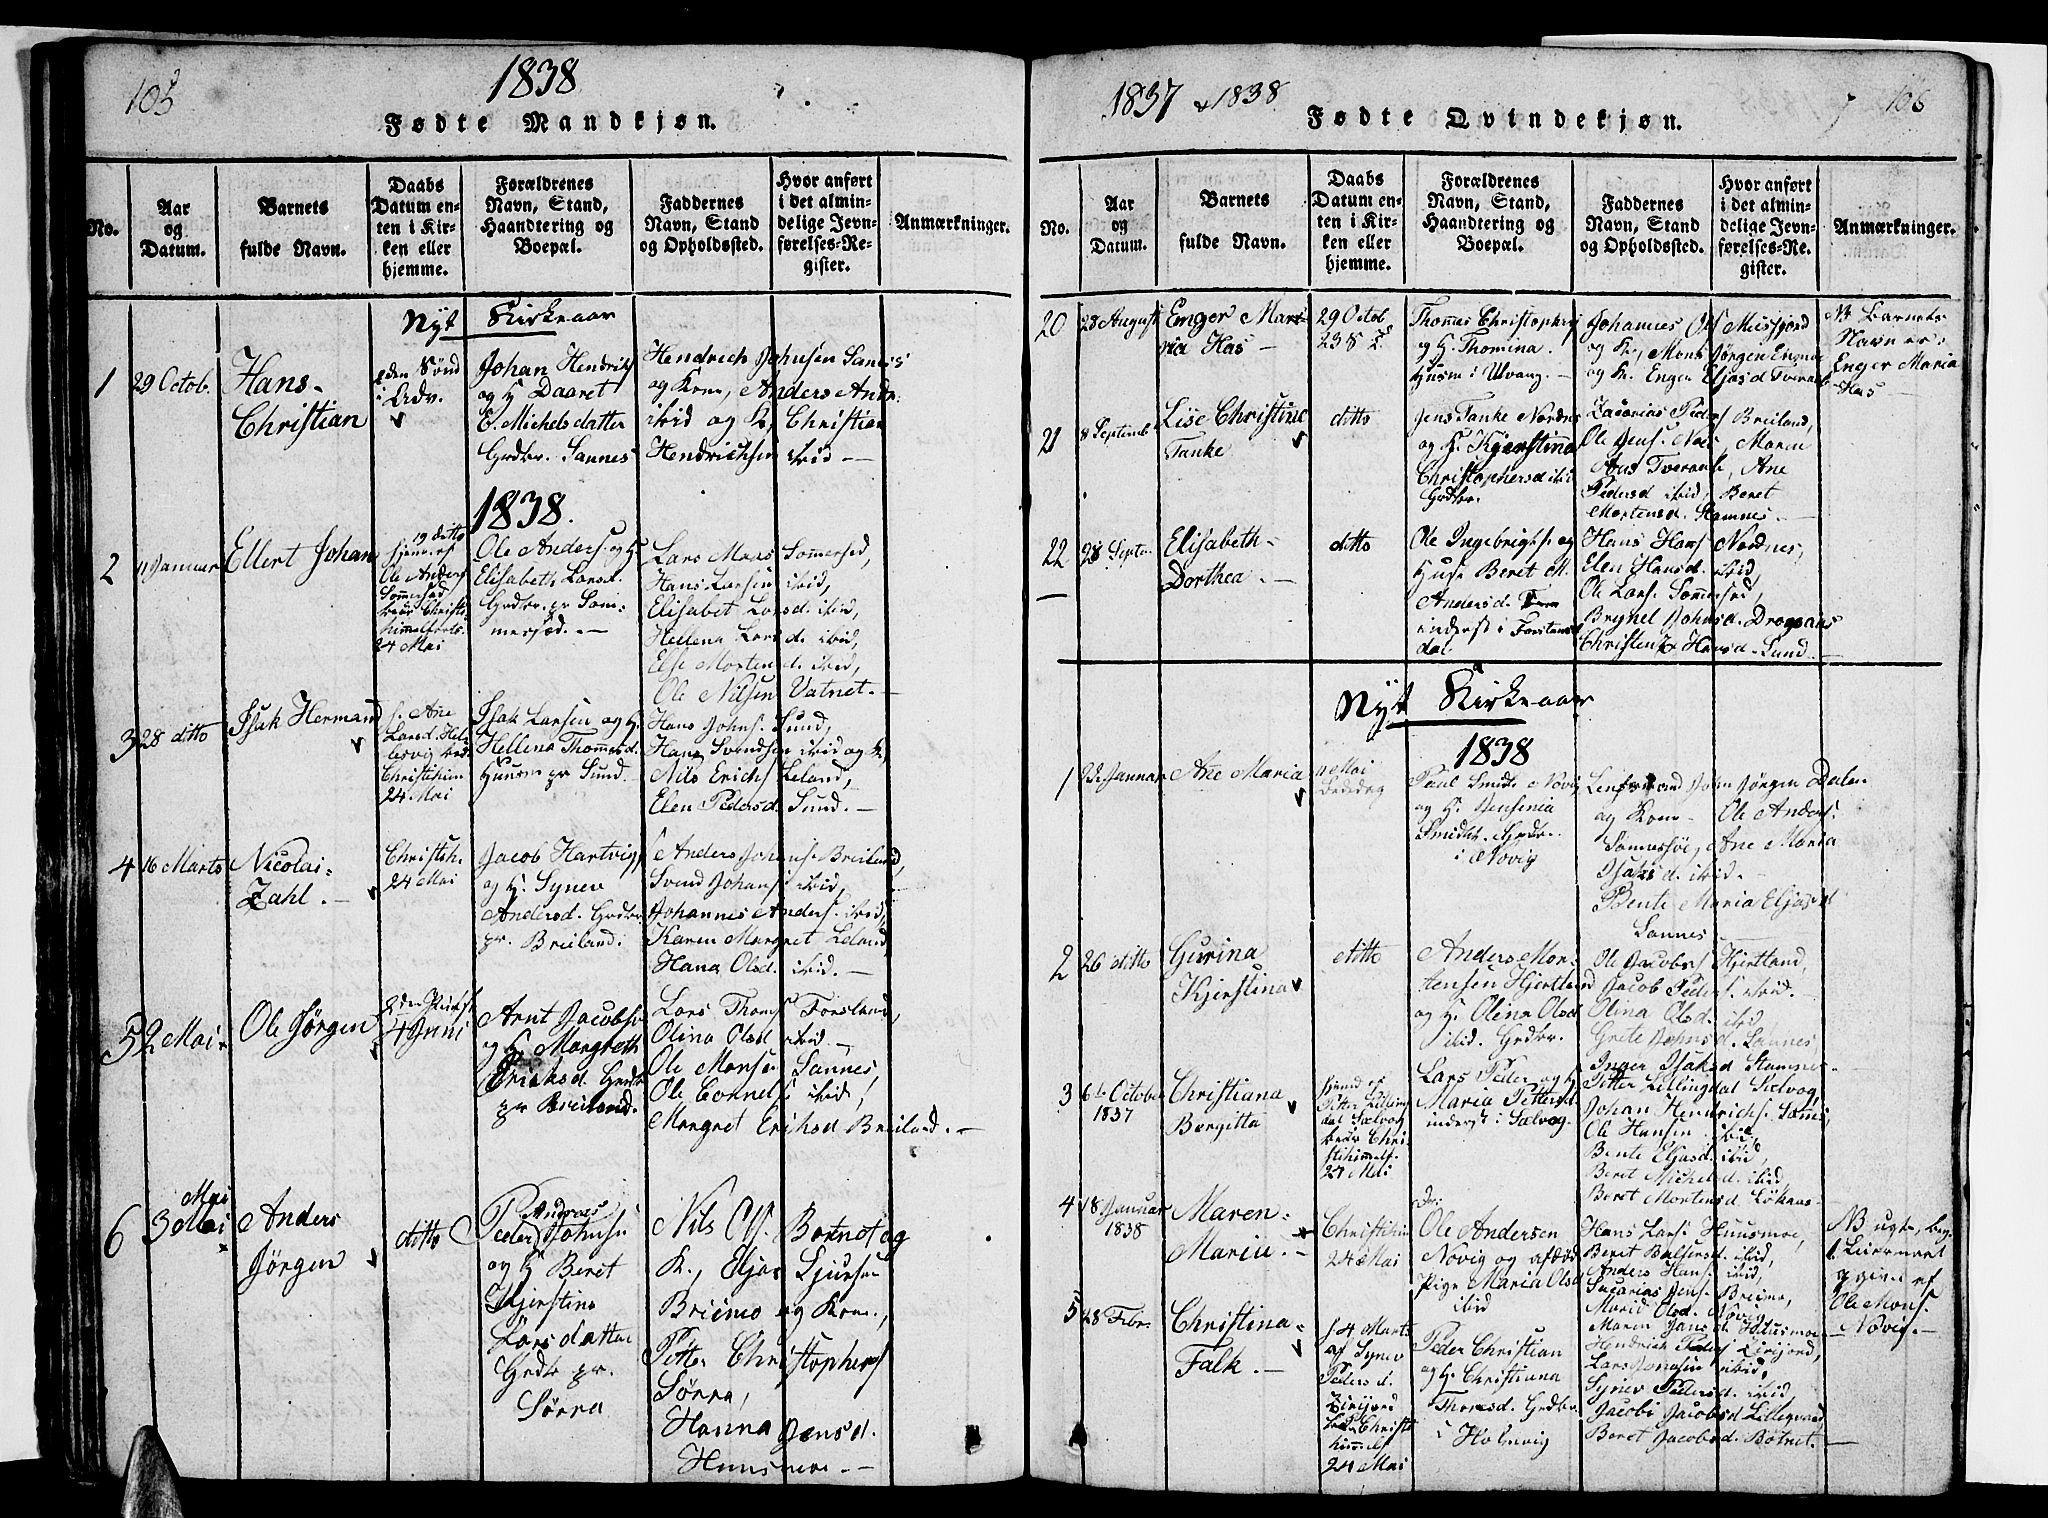 105
1838
Fødte Mandkjøn.
No.
Aar
og
Datum.
Barnets
fulde Navn.
Daabs
Datum en-
ten i Kir-
ken eller
hjemme.
Forældrenes
Navn, Stand,
Haandtering og
Boepæl.
Faddernes
Navn, Stand
og Opholdssted.
Hvor anført
i det almin-
delige Jevn-
førelses-Re-
gister.
Anmærkninger.
Nyt Kirkeaar
1
29 Octob.
Hans-
Christian
2den Sønd
i Adv.
Johan Hendrichs
og H Daaret
E. Michelsdatter
Grdbr. Sannes
Hendrich Johnsen Sannes
og Kone, Anders Andr.
ibid og K, Christian
Hendrichsen ibid —
1838.
2
11 Januar
Ellert Johan
19 ditto
hjem. af
Ole Anders
Sommersæd
Christi
himmelfarts
24 Mai
Ole Anders. og H.
Elisabeth Larsd.
Grdbr. pr Som-
mersæd. —
Lars Mons Sommersed,
Hans Larsen ibid,
Elisabet Larsd. ibid,
Hellena Larsd. ibid,
Else Mortensd. ibid,
Ole Nilsen Vatnet. —
3
28 ditto
Isak Hermand
f. Ane
Larsd. Hel-
lesvig
Christihim
24 Mai
Isak Larsen og H.
Hellena Thomesd.
Huusm pr Sund. —
Hans Johns. Sund,
Hans Svendsen ibid og K,
Nils Erichs Leland,
Elen Pedersd. Sund. —
4
16 Marts
Nicolai-
Zahl. —
Christih.
24 Mai
Jacob Hartvigs
og H. Synev
Andersd. Grdbr
pr. Breiland.
Anders Johans. Breiland,
Svend Johans. ibid,
Johannes Anders. ibid,
Karen Margret Leland,
Hana Olsd. ibid. —
5
2 Mai
Ole Jørgen
2den Pintsd
4 Juni
Arnt Jacobs
og H Margreth
Eriksd. Grdbr
pr Breiland.
Lars Thoms Forsland,
Olina Olsd ibid. —
Ole Monsen Sannes,
Ole Cornels ibid,
Margret Eriksd Breiland. —
6
Mai
3 Mai
Anders
Jørgen
ditto
Andreas
Peder Johns
og H Beret
Kjerstina
Larsdatter
Grdbr pr.
Sørra
Nils Ols. Botnet og
K., Eljas Ljursen
Breimo og Kone,
Petter Christophers
Sørra,
Hanna Jensd.
Huusmoe. —
1837 & 1838
Fødte Qvindekjøn.
106
No.
Aar
og
Datum.
Barnets
fulde Navn.
Daabs
Datum en-
ten i Kir-
ken eller
hjemme.
Forældrenes
Navn, Stand,
Haandtering og
Boepæl.
Faddernes
Navn, Stand
og Opholdssted.
Hvor anført
i det almin-
delige Jevn-
førelses-Re-
gister.
Anmærkninger.
20
23 August
Enger Ma-
ria Has —
29 Octob
Thomas Christophers
og H. Thomina.
Husm i Ulvang —
Johannes Ols Meisfjord
og K, Mons Jørgen
og K. Enger Eljasd Tveraae
NB Barnets
Navn er:
Enger Maria
Has —
21
8 Septemb
Lise Christine
Tanke
ditto
Jens Tanke Nordnes
og H. Kjerstina
Christophersd ibid
Grdbr.
Zacarias Peders Breiland,
Ole Jens. Næs, Maren
Tveraae, Ane
Pedersd ibid, Beret
Mortensd. Stamnes —
22
28 Septr.
Elisabeth-
Dorthea. —
ditto
Ole Ingebrigts. og
Huse Beret M.
Andersd.
inderst i Forslands
dal.
Hans Hans Nordnes,
Elen Hansd. ibid,
Ole Lars. Sommersed,
Brynel Johnsd. Dragaas
Hansd. Lund. —
Nyt Kirkeaar
1838
1
22 Januar
Ane Maria
11 Mai
Bededag
Paul Smidt Novig
og H. Jensenia
Smidt. Grdbr.
i Novig
Lensmand John Jørgen Dalen
og Kone — Ole Anders.
Sannessøe, Ane Maria
Isaksd. ibid. —
Bente Maria Eljasd
Sannes
2
26 ditto
Gurina
Kjerstina
ditto
Anders Mor-
tensen Hjertland
og H. Olina Olsd
ibid. Grdbr.
Ole Jacobs Hjertland,
Jacob Peders. ibid.
Olina Olsd. ibid
Grete Johnsd. Sannes,
Inger Isaksd Stamnes —
3
6te October
1837
Christiana
Bergitta
hjemd af
Petter Lilling
dal Sælvog
Chri-
stihimmelf.
24 Mai
Lars Peder og H
Maria Pettersd
inderst i Sælvog
Petter Lillingdal Sælvog,
Johan Hendrichs. Sannes,
Ole Hansen ibid,
Bente Eljasd. ibid,
Beret Michelsd. ibid,
Beret Mortensd Løkaas —
4
18 Januar
1838
Maren-
Maria. —
Christihim
24 Mai
Ole Andersen
Novig og
Pige Maria Olsd
ibid
Hans Lars. Huusmoe,
Beret Baltsersd. ibid,
Anders Hans. ibid,
Sacarias Jens. Breimo,
Marid Olsd. Novig
Maren Jansd. Huusmoe
NB ugte,

af
Ole Mons.
Novig. —
5
28 Febr
Christina-
Falk. —
f 4 Marts
af Synev
Pedersd.
Leirfjord
Christi
himmelf
24 Mai
Peder Christian
og H. Christiana
Thomsd. Grdbr.
i Holmvig
Hendrich Peders Leirfjord,
Lars Jonasen ibid,
Synev Pedersd. ibid,
Jacobi Jacobsd Lillegaard,
Beret Jacobsd. Botnet. —